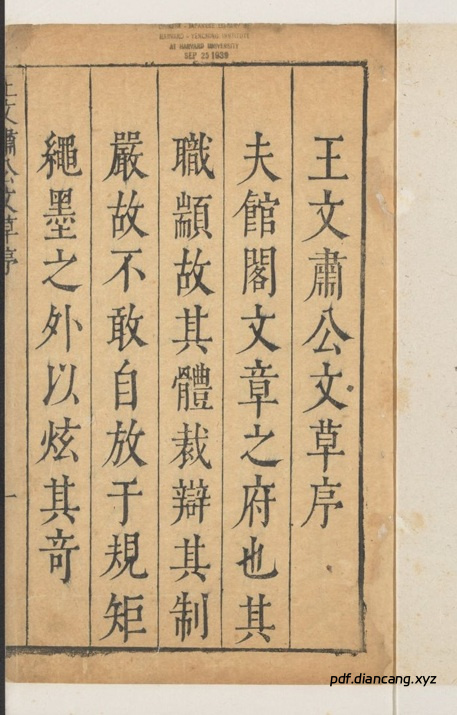 王文肅公文草序
夫館閣文章之府也其
職顓故其體裁辯其制
嚴故不敢自放于規矩
繩墨之外以炫其奇
王文肅公文草序
一
HARVARD-YENCHING INSTITUTE
AT HARVARD UNIVERSITY
SEP 25 1939
pdf.diancang.xyz